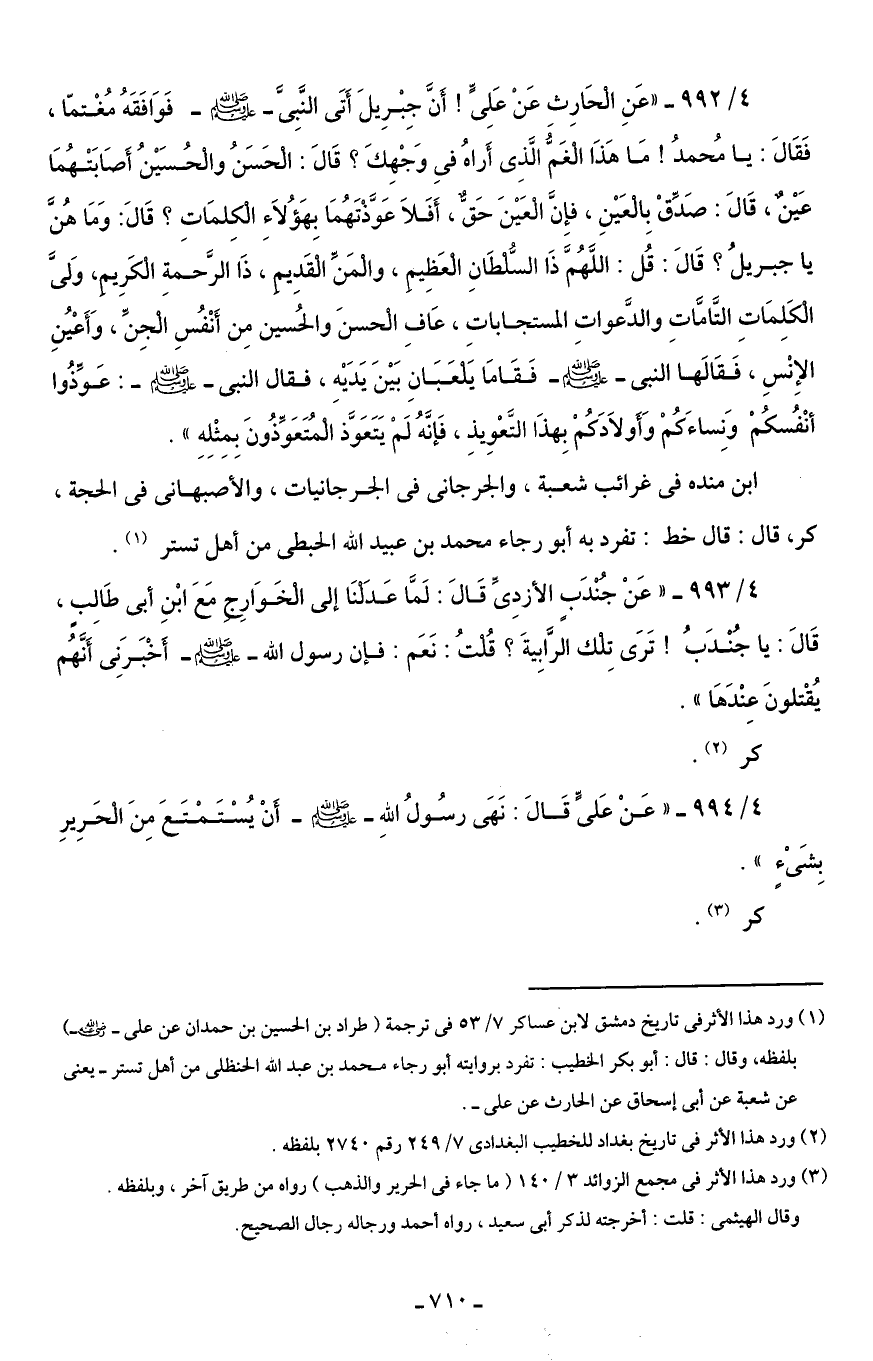 ٤/ ٩٩٢ ـ «عَنِ الْحَارِثِ عَنْ عَلِىٍّ ! أَنَّ جِبْرِيلَ أَتَى النَّبِىَّ ـ ﷺ ـ فَوَافَقَهُ مُغْـتمّا ،
فَقَالَ : يـا مُحمدُ ! مَـا هَذَا الْغَمُّ الَّذِى أَراهُ فى وَجْهِكَ ؟ قالَ : الْحَسَنُ والْحُـسَيْنُ أصابَتْـهُمَا
عَيْنٌ ، قَالَ : صَدِّقْ بِالْعَيْنِ ، فإنَّ الْعَيْنَ حَقٌّ ، أَفَـلاَ عَوَّذْتَهُمَا بِهَؤُلاَءِ الْكلِمَاتِ ؟ قالَ: وَمَا هُنَّ
يا جبـريلُ ؟ قَالَ : قُل : اللَّهُمَّ ذَا السُّلْطَانِ الْعَظِيمِ ، والْمَنِّ الْقَدِيمِ ، ذَا الرَّحـمةِ الْكَرِيمِ، وَلِىَّ
الْكَلِمَاتِ التَّامَّاتِ والدَّعواتِ المستجـاباتِ ، عَافِ الْحسنَ والحُسين مِن أَنْفُسِ الْجنِّ ، وأَعْيُنِ
الإنْسِ ، فَـقَالَهـا النبى ـ ﷺ ـ فَـقَامَا يَلْعَبَـانِ بَيْنَ يَدَيْهِ ، فـقال النبى ـ ﷺ ـ : عَـوِّذُوا
أنْفُسكُمْ وَنِساءكُمْ وَأَولاَدَكُمْ بِهذَا التَّعْوِيذِ ، فَإنَّهُ لَمْ يَتَعَوَّذ الْمُتَعَوِّذُونَ بِمثْلِهِ » .
ابن منده فى غرائب شعبة ، والجرجانى فى الجـرجانيات ، والأصبهـانى فى الحجة ،
كر، قال : قال خط : تفرد به أبو رجاء محمد بن عبيد الله الحبطى من أهل تستر (١) .
٤/ ٩٩٣ ـ « عَنْ جُنْدَبٍ الأزدِىِّ قَـالَ : لَمَّا عَـدَلْنَا إلى الْخَـوَارِجِ مَعَ ابْنِ أبى طَالِبٍ ،
قَالَ : يا جُنْـدَبُ ! تَرَى تِلْك الرَّابِيةَ ؟ قُلْتُ : نَعَم : فـإن رسول الله ـ ﷺ ـ أَخْبَـرَنِى أَنَّهُم
يُقْتلونَ عِنْدَهَا » .
كر (٢) .
٤/ ٩٩٤ ـ « عَـنْ عَلىٍّ قَـالَ : نَهَى رسُـولُ اللهِ ـ ﷺ ـ أَنْ يُسْتَـمْـتَـعَ مِنَ الْحَـرِيرِ
بِشَىْءٍ » .
كر (٣) .
(١) ورد هذا الأثر فى تاريخ دمشق لابن عساكر ٧/ ٥٣ فى ترجمة ( طراد بن الحسين بن حمدان عن على ـ رضي الله عنه ـ)
بلفظه، وقال : قال : أبو بكر الخطيب : تفرد بروايته أبو رجاء محـمد بن عبد الله الحنظلى من أهل تستر ـ يعنى
عن شعبة عن أبى إسحاق عن الحارث عن على ـ .
(٢) ورد هـذا الأثر فى تاريخ بغداد للخطيب البغدادى ٧/ ٢٤٩ رقم ٢٧٤٠ بلفظه .
(٣) ورد هذا الأثر فى مجمع الزوائد ٣ / ١٤٠ ( ما جاء فى الحرير والذهب ) رواه من طريق آخر ، وبلفظه .
وقال الهيثمى : قلت : أخرجته لذكر أبى سعيد ، رواه أحمد ورجاله رجال الصحيح.
ـ ٧١٠ ـ